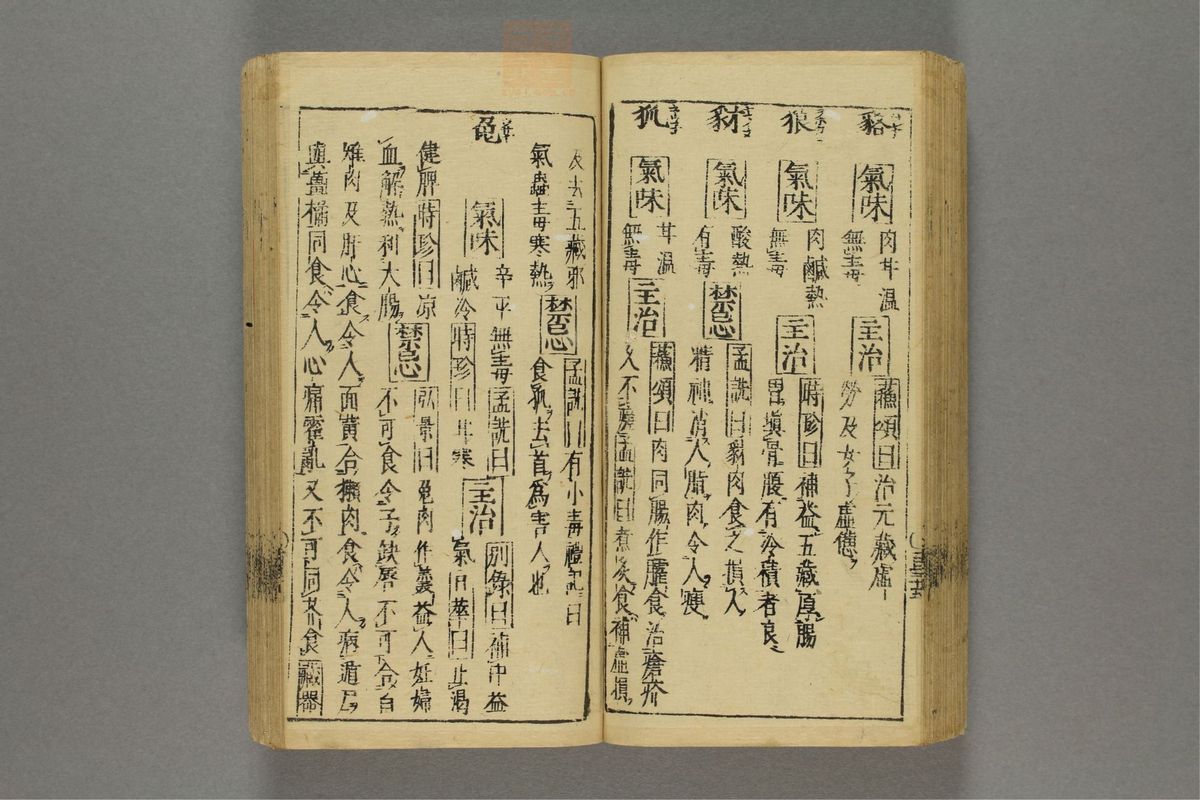 貉
氣味 肉甘溫
無毒 主治 蘇頌曰治元藏虛
勞及女子虛憊
狼
氣味 肉鹹熱
無毒 主治 時珍曰補益五藏厚腸
胃塡骨髓有冷積者良
豺
氣味 酸熱
有毒 禁忌 孟詵曰豺肉食之損人
精神消人脂肉令人瘦
狐
氣味 甘溫
無毒 主治 蘇頌曰肉同腸作臛食治瘡疥
久不瘥孟詵曰煮炙食補虛損
及去五藏邪
氣蠱毒寒熱 禁忌 孟詵曰有小毒禮記曰
食狐去首爲害人也
兔
氣味 辛平無毒孟詵曰
鹹冷時珍曰甘寒 主治 別錄曰補中益
氣日華曰止渴
健脾時珍曰凉
血解熱利大腸 禁忌 弘景曰兔肉作羹益人妊婦
不可食令子缺唇不可合白
雞肉及肝心食令人面黃合獺肉食令人病遁尸
與薑橘同食令人心痛霍亂又不可同芥食藏器